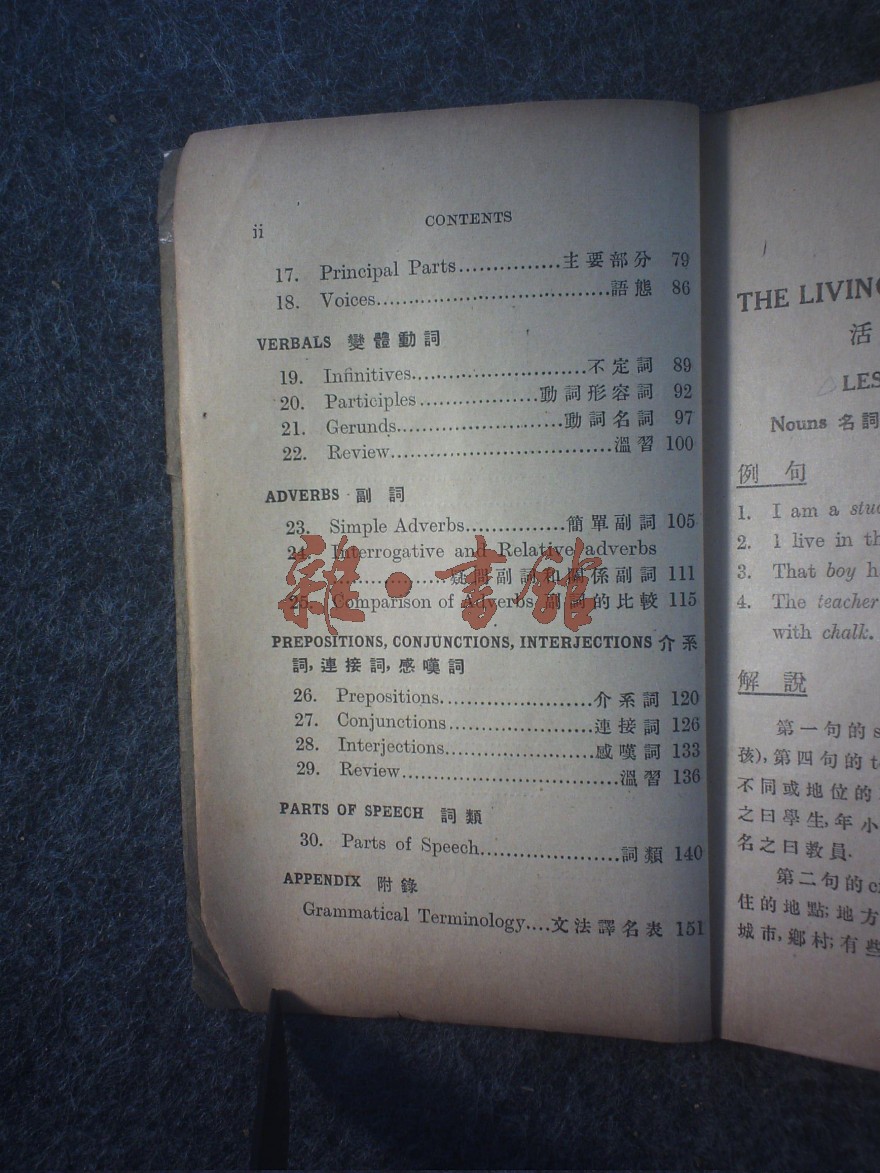 ii CONTENTS
17. Principal Parts...............主要部分 79
18. Voices..................................語態 86
VERBALS 變體動詞
19. Infinitives..........................不定詞 89
20. Participles.................動詞形容詞 92
21. Gerunds.........................動詞名詞 97
22. Review................................溫習 100
ADVERBS 副詞
23. Simple Adverbs...............簡單副詞 105
24. Interrogative and Relative adverbs
..................疑問副詞和關係副詞 111
25. Comparison of Adverbs 副詞的比較 115
PREPOSITIONS, CONJUNCTIONS, INTERJECTIONS 介系
詞, 連接詞, 感嘆詞
26. Prepositions.......................介系詞 120
27. Conjunctions......................連接詞 126
28. Interjections.......................感嘆詞 133
29. Review................................溫習 136
PARTS OF SPEECH 詞類
30. Parts of Speech.....................詞類 140
APPENDIX 附錄
Grammatical Terminology....文法譯名表 151
雜·書館
THE LIVING
活
LES
Nouns 名詞
例句
1. I am a stud
2. I live in th
3. That boy h
4. The teacher
with chalk.
解說
第一句的 s
孩), 第四句的 t
不同或地位的
之曰學生, 年小
名之曰教員.
第二句的 c
住的地點; 地方
城市, 鄉村; 有些